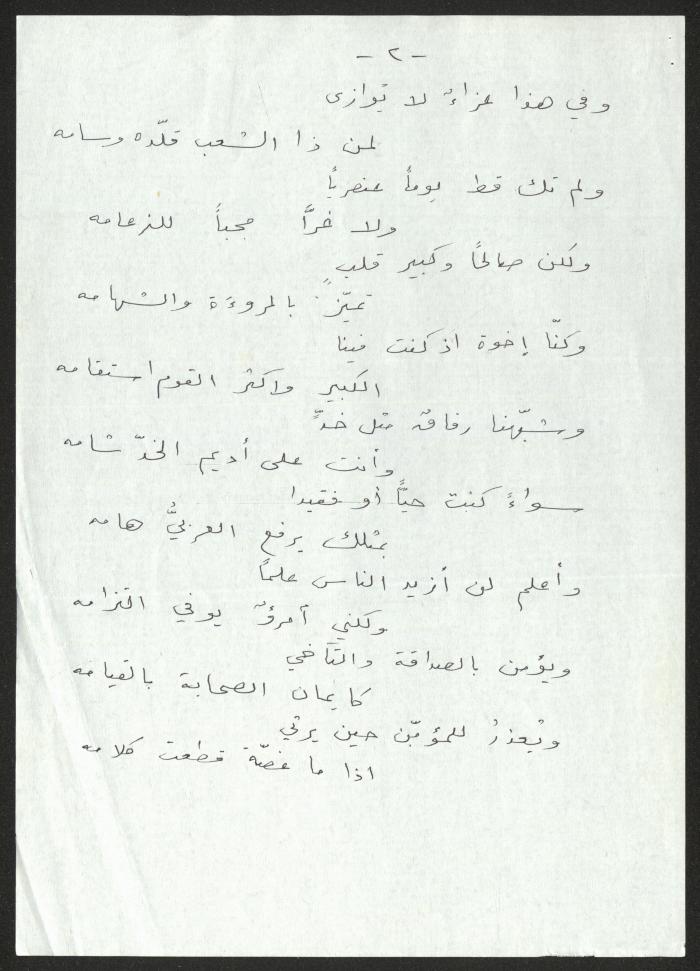 - ٢ -
وفي هذا عزاءٌ لا يُوازى
لمن ذا الشعب قلّده وسامه
ولم تك قط يوماً عنصرياً
ولا غرّاً محباً للزعامه
ولكن صالحاً وكبير قلبٍ
تميّز بالمروءَة والشهامه
وكنّا إخوة اذ كنت فينا
الكبير واكثر القوم استقامه
وشبّهنا رفاقٌ مثل خدٍّ
وأنت على أديم الخدّ شامه
سواءً كنت حيّاً أو فقيدا
بمثلك يرفع العربيُّ هامه
وأعلم لن أزيد الناس علماً
ولكني آمرؤٌ يوفي التزامه
ويؤمن بالصداقة والتآخي
كايمان الصحابة بالقيامه
ويُعذرُ للمؤبّن حين يرثي
اذا ما غصّة قطعت كلامه